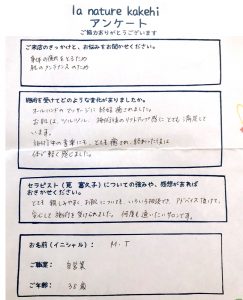 la nature kakehi
アンケート
ご協力ありがとうございます
ご来店のきっかけと、お悩みをお聞かせください。
身体の疲れをとるため
肌のメンテナンスのため
施術を受けてどのような変化がありましたか。
オールハンドのマッサージに終始癒されました。
お肌は、ツルツル、施術後のリフトアップ感にとても満足して
います。
施術中の音楽にも、とても癒され、終わった後は
体が軽く感じました。
セラピスト(筧 富久子)についての強みや、感想があれば
おきかせください。
とても親しみやすく、お肌についても、いろいろ相談でき、アドバイス頂けて、
安心して施術を受けられました。何度も通いたいサロンです。
お名前(イニシャル): M.T
ご職業: 自営業
ご年齢: 38歳